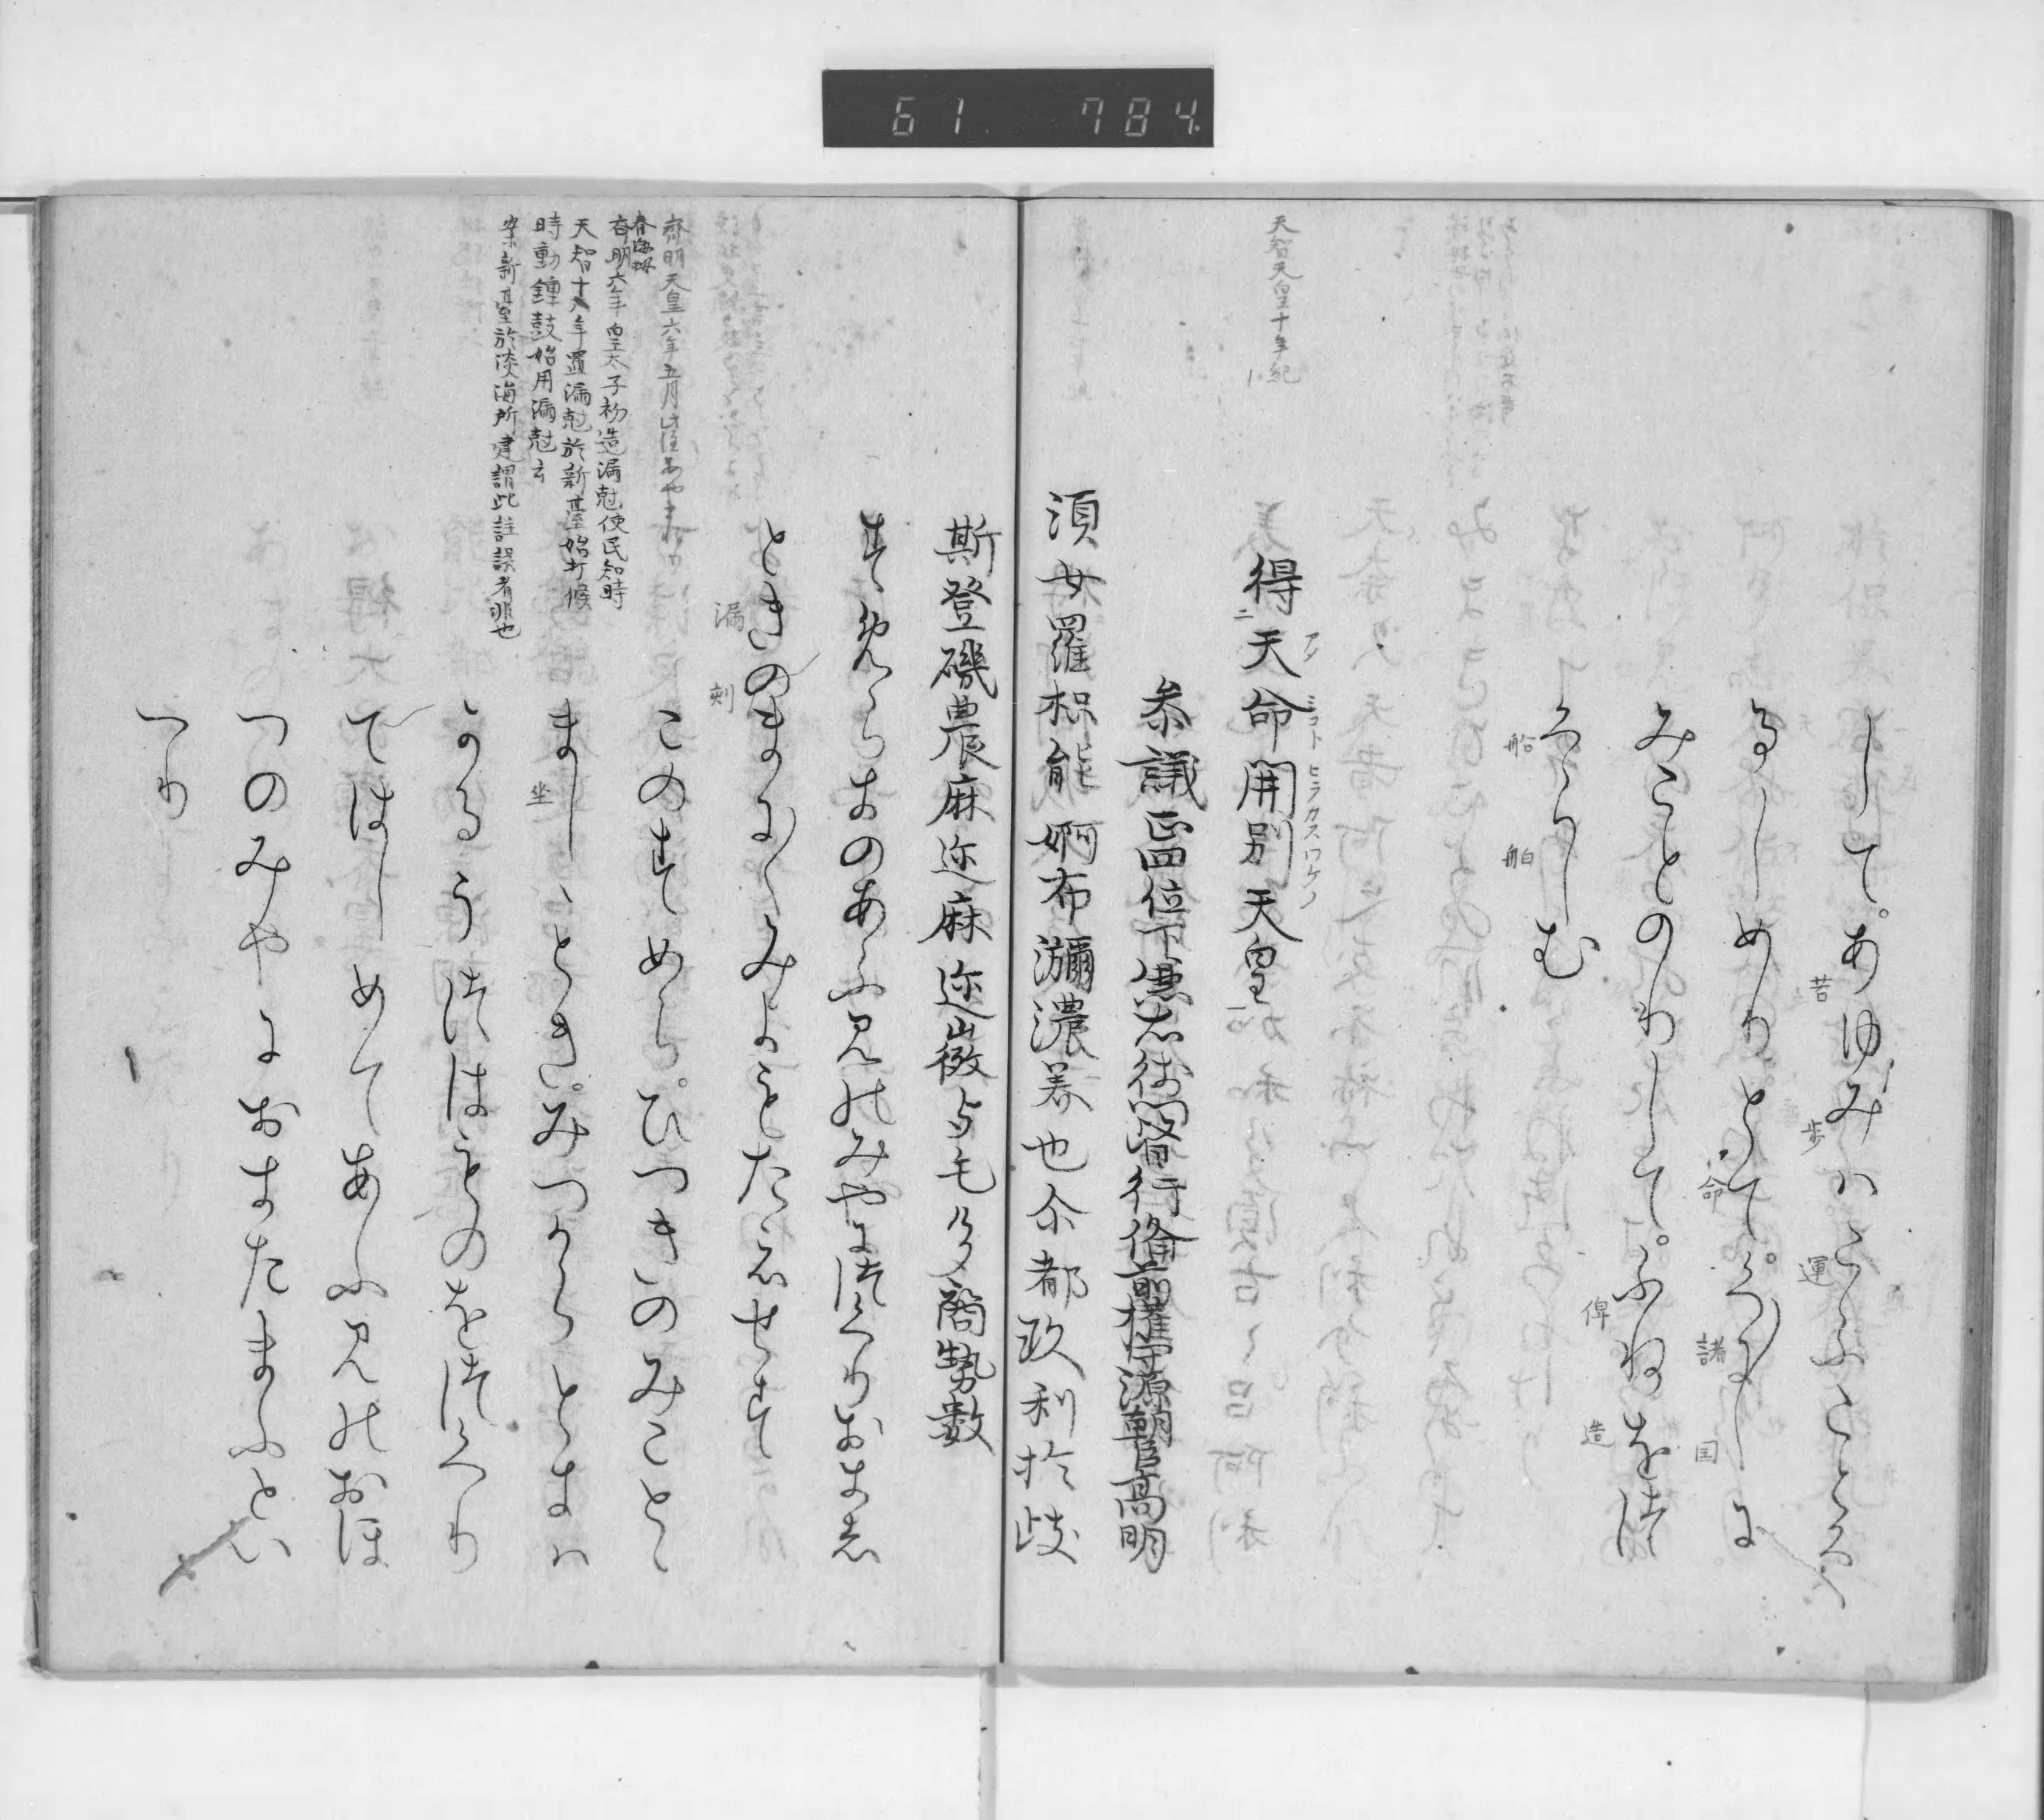 61 784
して。あゆみはこふこと
みことのりして。ふねをつ
くらしむ
苦
歩
運
命
諸
国
俾
造
船
舶
天智天皇十年紀
得天命開別天皇
アメ ミコト ヒラカスワケノ
二
参議正四位下兼右衛門督行備前権守源朝臣高明
須女羅枳能婀布瀰濃美也尓都玖利於岐
斯登磯農麻迩麻迩微与毛多商勢数
すめらきのあふみのみやにつくりおきし
ときのまに〱みよもたえせす
漏
剋
このすめら。ひつきのみこと
ましゝとき。みつからときは
坐
かるうつはものをつくり
てはしめてあふみのおほ
つのみやにおきたまふとい
へり
齊明天皇六年五月
春海按
斉明六年皇太子初造漏尅使民知時
天智十年置漏尅於新臺始打候
時動鍾鼓始用漏尅云
案新臺於淡海所建謂此註誤者非也